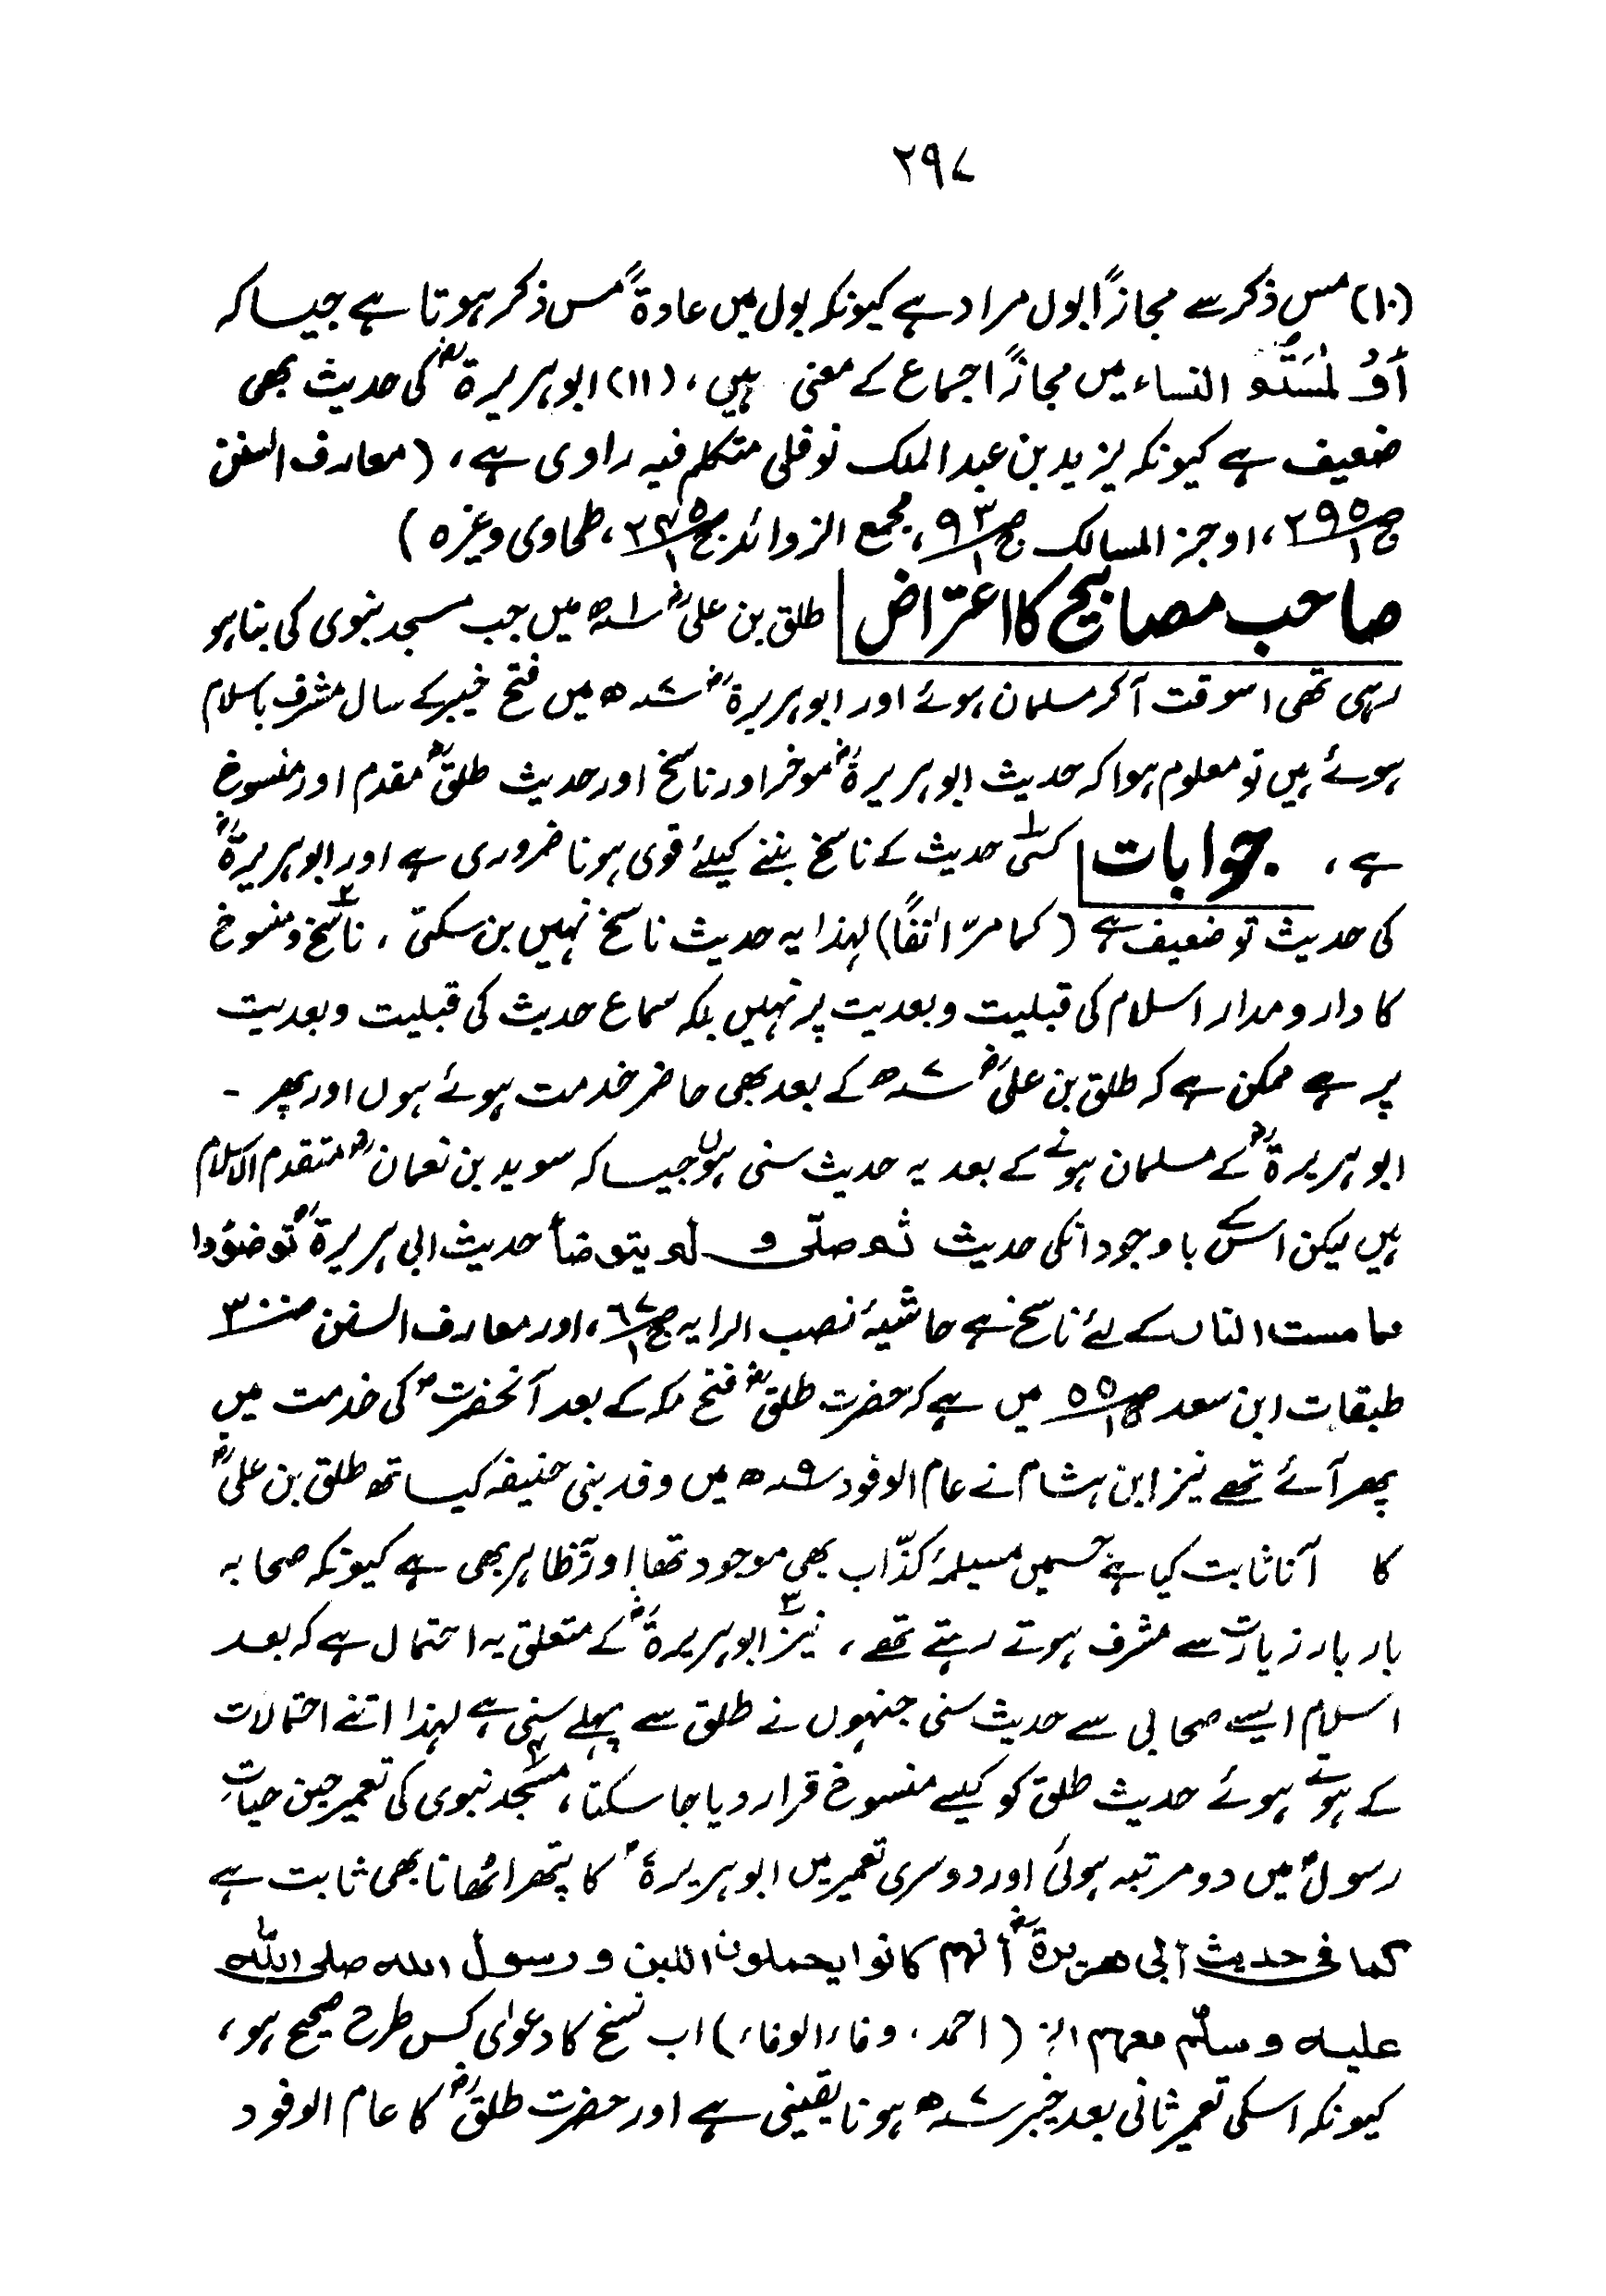 ۲۹۷
(۱۰) مس ذکر سے مجازاً بول مراد ہے کیونکہ بول میں عادۃً مس ذکر ہوتا ہے جیسا کہ
أَوْ لٰمَسْتُمُ النساء میں مجازاً جماع کے معنی ہیں، (۱۱) ابو ہریرۃؓ کی حدیث بھی
ضعیف ہے کیونکہ یزید بن عبد الملک نوفلی متکلم فیہ راوی ہے، (معارف السنن
ج۱ ص۲۹۵، اوجز المسالک ج۱ ص۹۳، مجمع الزوائد ج۱ ص۲۴۵، طحاوی وغیرہ)
صاحب مصابیح کا اعتراض طلق بن علیؓ ۱ھ میں جب مسجد نبوی کی بنا ہو
رہی تھی اسوقت آکر مسلمان ہوئے اور ابو ہریرۃؓ ۷ھ میں فتح خیبر کے سال مشرف باسلام
ہوئے ہیں تو معلوم ہوا کہ حدیث ابو ہریرۃؓ موخر اور ناسخ اور حدیث طلقؓ مقدم اور منسوخ
ہے، جوابات ۱ کسی حدیث کے ناسخ بننے کیلئے قوی ہونا ضروری ہے اور ابو ہریرۃؓ
کی حدیث تو ضعیف ہے (کما مرّ اٰنفًا) لہذا یہ حدیث ناسخ نہیں بن سکتی، ۲ ناسخ و منسوخ
کا دارو مدار اسلام کی قبلیت و بعدیت پر نہیں بلکہ سماع حدیث کی قبلیت و بعدیت
پر ہے ممکن ہے کہ طلق بن علیؓ ۷ھ کے بعد بھی حاضر خدمت ہوئے ہوں اور پھر -
ابو ہریرۃؓ کے مسلمان ہونے کے بعد یہ حدیث سنی ہوں جیسا کہ سوید بن نعمانؓ متقدم الاسلام
ہیں لیکن اسکے باوجود انکی حدیث ثم صلّی و لم یتوضأ حدیث ابی ہریرۃؓ توضؤوا
مما مست النار کے لئے ناسخ ہے حاشیۂ نصب الرایہ ج۱ ص۶۷، اور معارف السنن ص۳۰۰
طبقات ابن سعد ج۵ ص۵۵ میں ہے کہ حضرت طلقؓ فتح مکہ کے بعد آنحضرتؐ کی خدمت میں
پھر آئے تھے نیز ابن ہشام نے عام الوفود ۹ھ میں وفد بنی حنیفہ کیساتھ طلق بن علیؓ
کا آنا ثابت کیا ہے جسمیں مسیلمۂ کذّاب بھی موجود تھا اور ظاہر بھی ہے کیونکہ صحابہ
بار بار زیارت سے مشرف ہوتے رہتے تھے، ۳ نیز ابو ہریرۃؓ کے متعلق یہ احتمال ہے کہ بعد
اسلام ایسے صحابی سے حدیث سنی جنہوں نے طلق سے پہلے سنی ہے لہذا اتنے احتمالات
کے ہوتے ہوئے حدیث طلق کو کیسے منسوخ قرار دیا جا سکتا، ۴ مسجد نبوی کی تعمیر حین حیاتِ
رسولؐ میں دو مرتبہ ہوئی اور دوسری تعمیر میں ابو ہریرۃؓ کا پتھر اٹھانا بھی ثابت ہے
کما فی حدیث أبی ھریرۃؓ أنهم کانوا یحملون اللبن و رسول اللہ صلی اللہ
علیہ وسلم معہم الخ (احمد، وفاء الوفاء) اب نسخ کا دعوٰی کس طرح صحیح ہو،
کیونکہ اسکی تعمیر ثانی بعد خیبر ۷ھ ہونا یقینی ہے اور حضرت طلقؓ کا عام الوفود